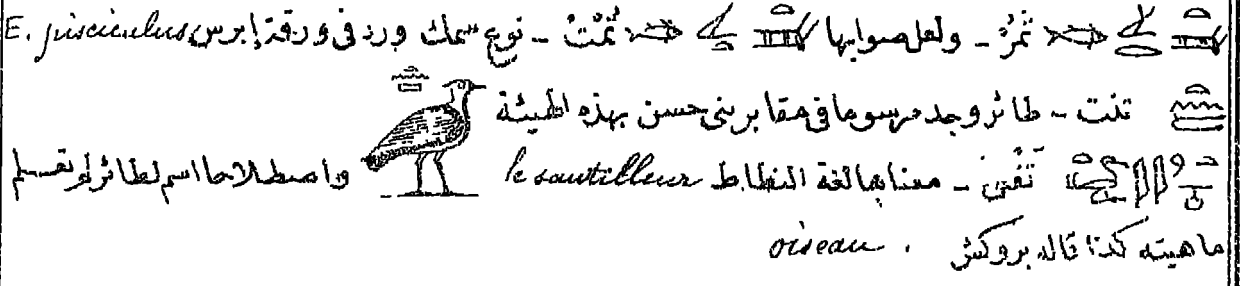 ثَمرُ - ولعل صوابها ثُمْتُ - نوع سمك ورد فى ورقة إبرس E. pisciculus
تنت - طائر وجد مرسوما فى مقابر بنى حسن بهذه الهيئة
تَفْنِ - معناها لغة النطاط le sautilleur واصطلاحا اسم لطائر لم تعلم
ماهيته كذا قاله بروكش . oiseau